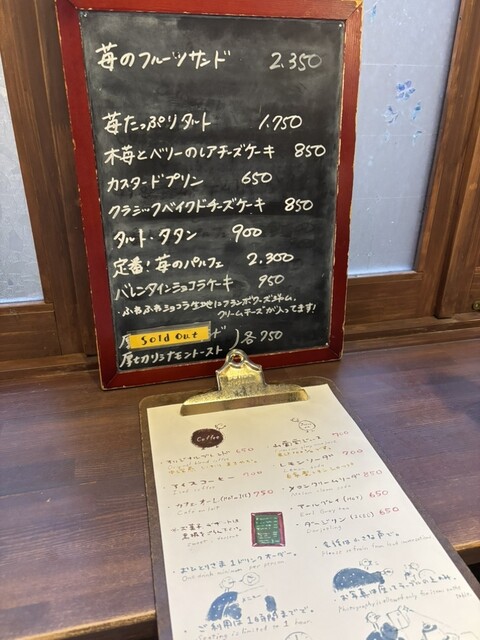 苺のフルーツサンド 2.350
苺たっぷりタルト 1.750
木苺とベリーのレアチーズケーキ 850
カスタードプリン 650
クラシックベイクドチーズケーキ 850
タルト・タタン 900
定番!苺のパルフェ 2.300
バレンタインショコラケーキ 950
・ふわふわショコラ生地にフランボワーズジャム、
クリームチーズが入ってます!
Sold out
各750
厚切りシナモントースト
Coffee
・オリジナルブレンド 650
・アイスコーヒー 700
Iced coffee
・カフェ・オ・レ (Hot or Ice) 750
Cafe au lait
900
レモンソーダ 900
・メロンクリームソーダ 850
・アールグレイ (Hot) 650
Earl Grey tea
・ダージリン 650
・おひとりさま1ドリンクオーダー。
One drink minimum per person
・会話は小さな声で。
・ご利用は1時間までで。
Seating is limited to 1 hour